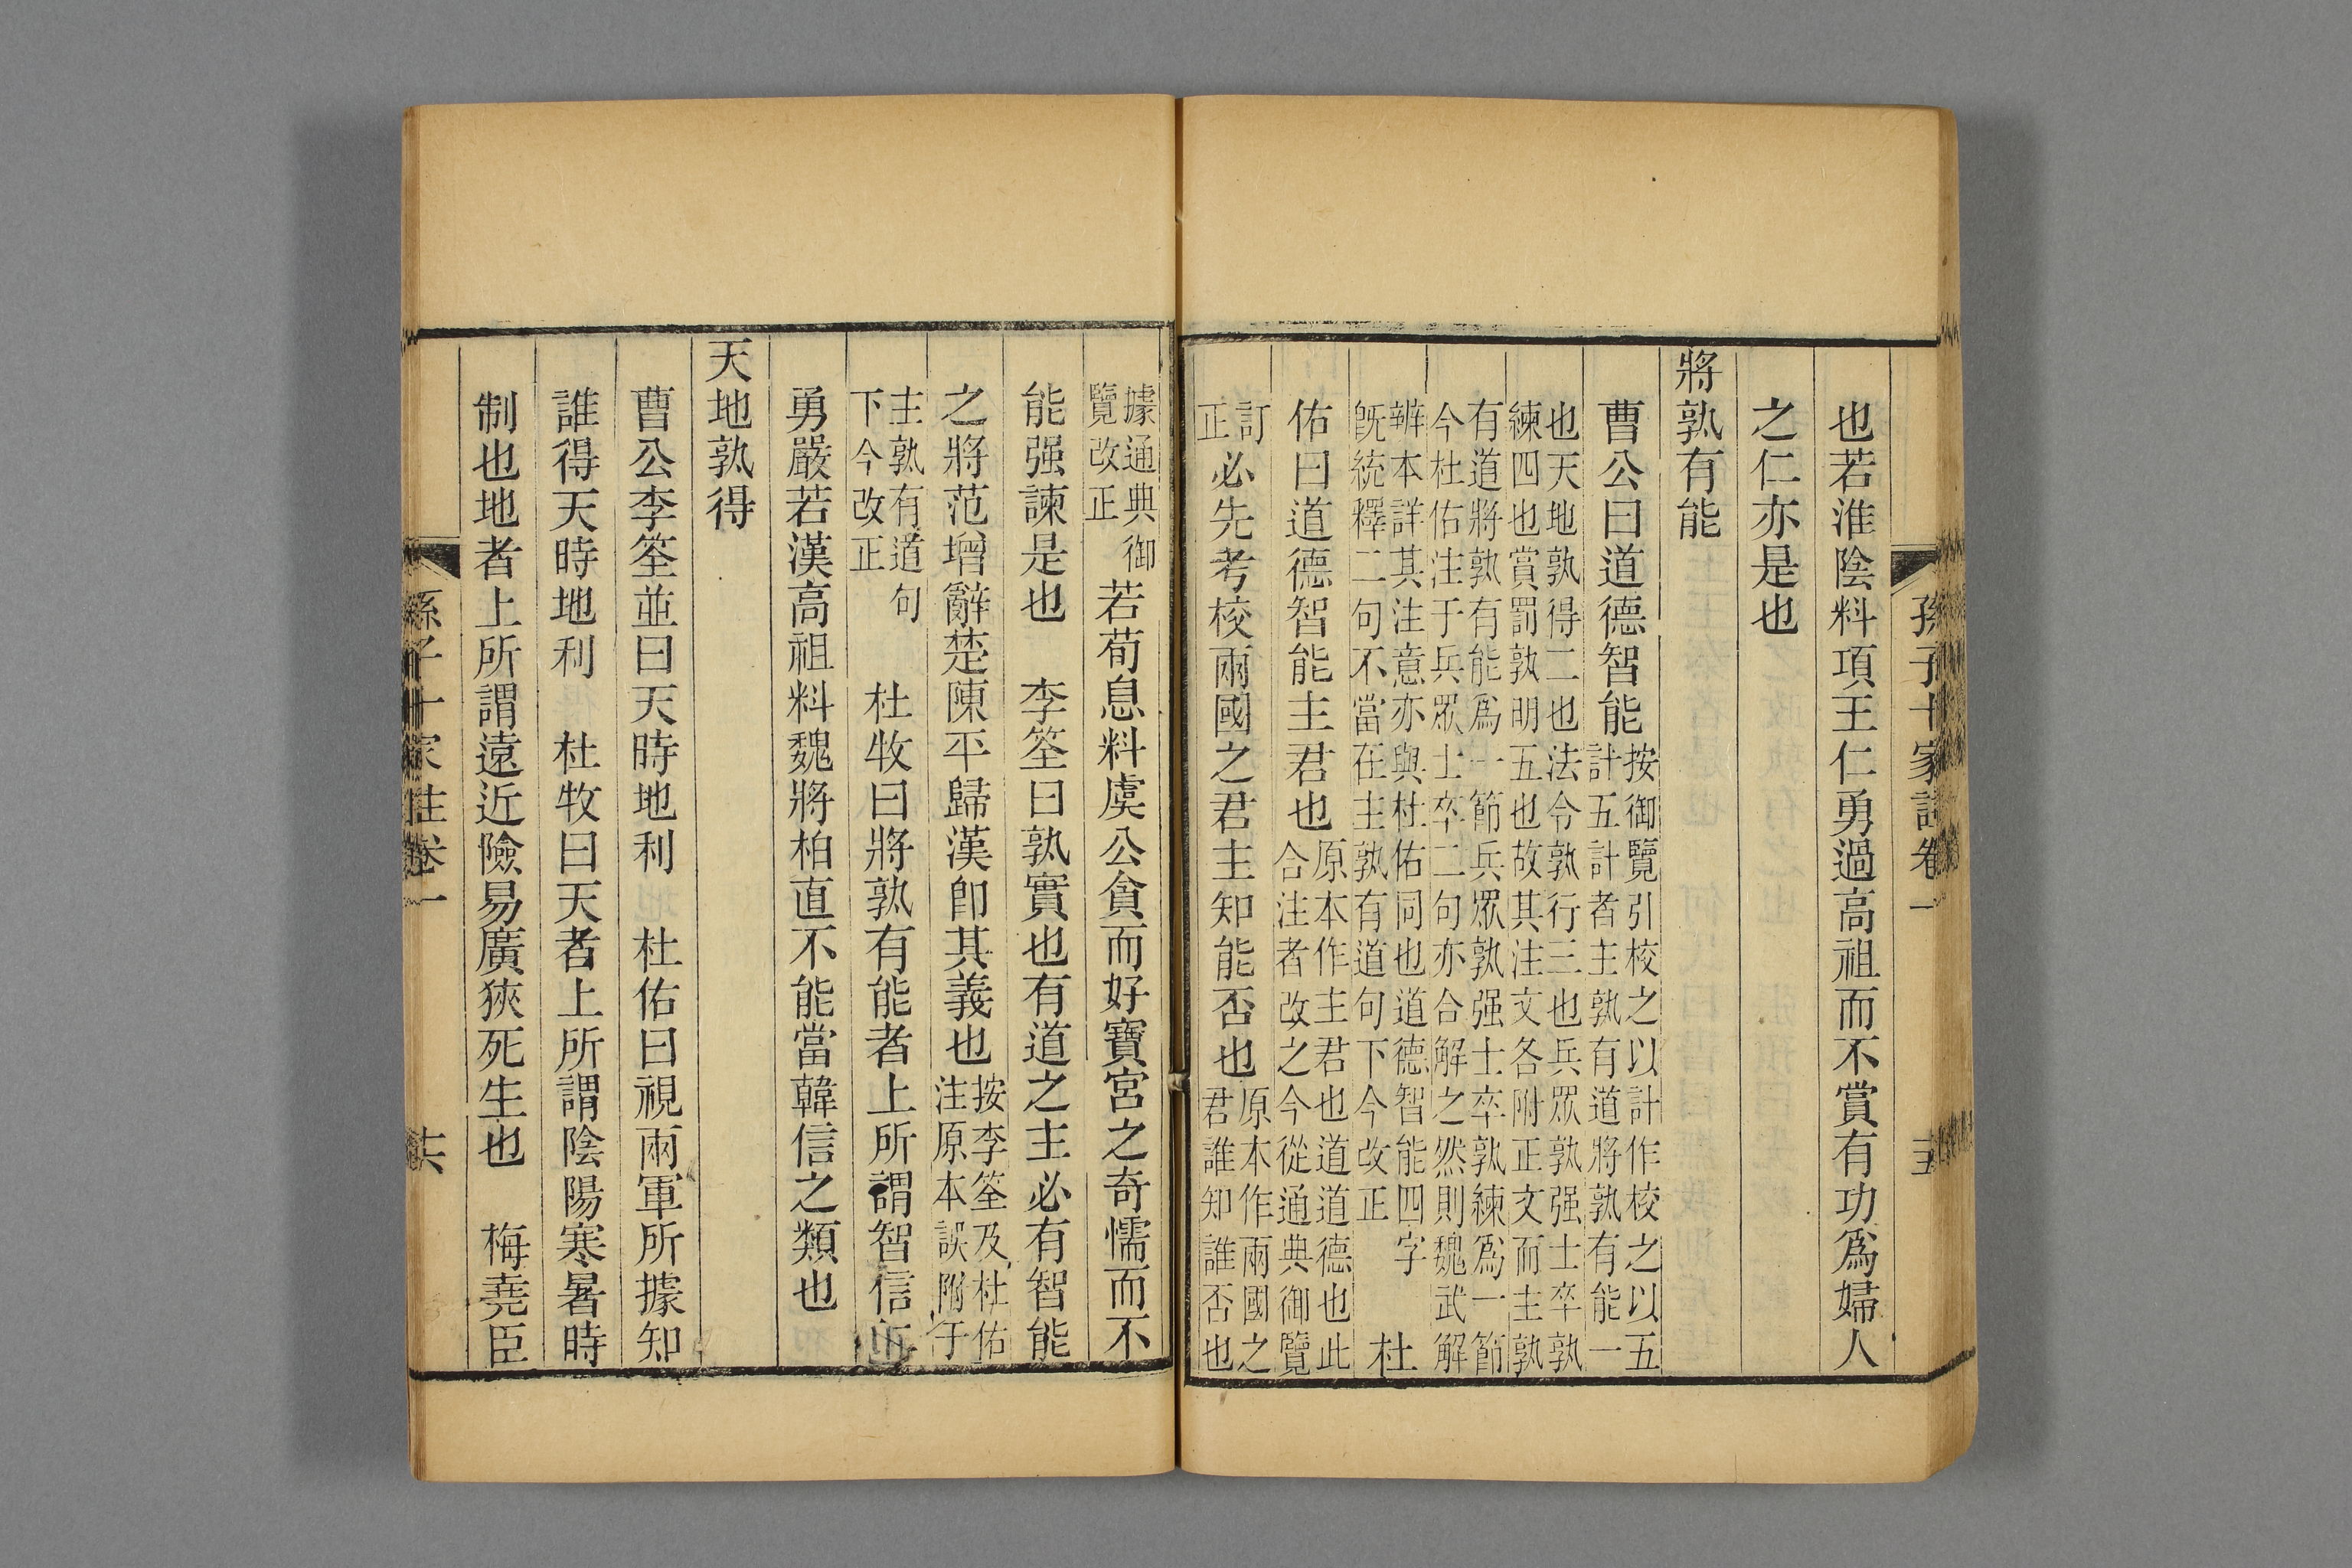 孫子十家註卷一
也若淮陰料項王仁勇過高祖而不賞有功爲婦人
之仁亦是也
將孰有能
曹公曰道德智能
按御覽引校之以計作校之以五
計五計者主孰有道將孰有能一
也天地孰得二也法令孰行三也兵眾孰强士卒孰
練四也賞罰孰明五也故其注文各附正文而主孰
有道將孰有能爲一節兵眾孰强士卒孰練爲一節
今杜佑注于兵眾士卒二句亦合解之然則魏武解
辨本詳其注意亦與杜佑同也道德智能四字
旣統釋二句不當在主孰有道句下今改正
杜
佑曰道德智能主君也
原本作主君也道道德也此
合注者改之今從通典御覽
訂
正
必先考校兩國之君主知能否也
原本作兩國之
君誰知誰否也
據通典御
覽改正
若荀息料虞公貪而好寶宮之奇懦而不
能强諫是也　李筌曰孰實也有道之主必有智能
之將范增辭楚陳平歸漢卽其義也
按李筌及杜佑
注原本誤附于
主孰有道句
下今改正
杜牧曰將孰有能者上所謂智信
勇嚴若漢高祖料魏將柏直不能當韓信之類也
天地孰得
曹公李筌並曰天時地利　杜佑曰視兩軍所據知
誰得天時地利　杜牧曰天者上所謂陰陽寒暑時
制也地者上所謂遠近險易廣狹死生也　梅堯臣
孫子十家註卷一